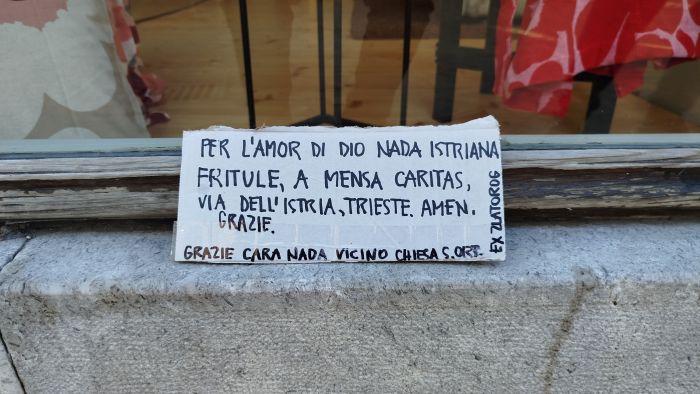 PER L'AMOR DI DIO NADA ISTRIANA
FRITULE, A MENSA CARITAS,
VIA DELL'ISTRIA, TRIESTE. AMEN.
GRAZIE.
GRAZIE CARA NADA VICINO CHIESA S. ORT.
EX ZLATOROG